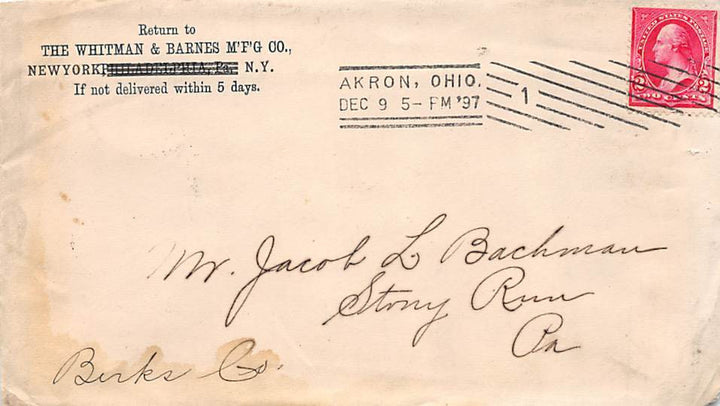 Return to
THE WHITMAN & BARNES M'F'G CO.,
NEWYORK PHILADELPHIA, Pa. N.Y.
If not delivered within 5 days.
AKRON, OHIO.
DEC 9 5-PM '97
1
UNITED STATES POSTAGE
2 2
TWO CENTS
Mr. Jacob L Bachman
Stony Run
Pa
Berks Co.